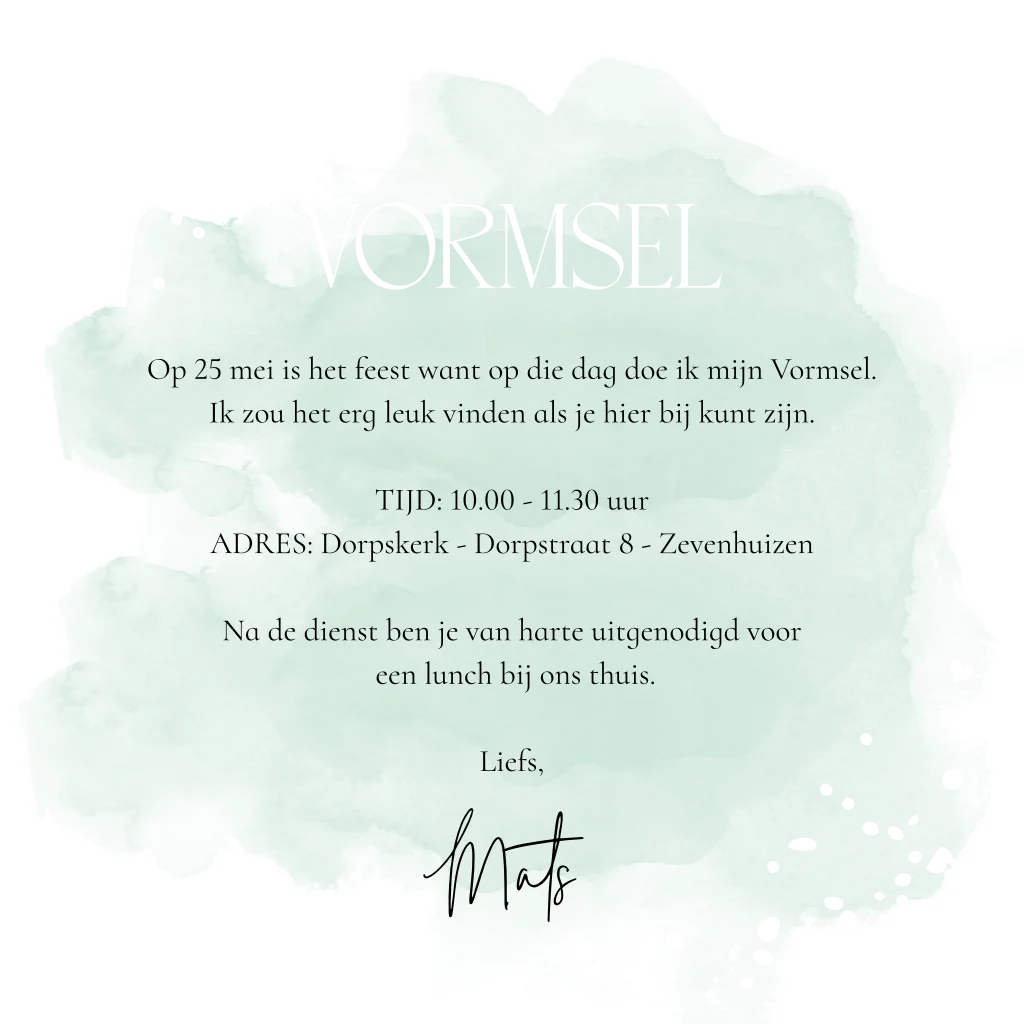 VORMSEL
Op 25 mei is het feest want op die dag doe ik mijn Vormsel.
Ik zou het erg leuk vinden als je hier bij kunt zijn.
TIJD: 10.00 - 11.30 uur
ADRES: Dorpskerk - Dorpstraat 8 - Zevenhuizen
Na de dienst ben je van harte uitgenodigd voor
een lunch bij ons thuis.
Liefs,
Mats